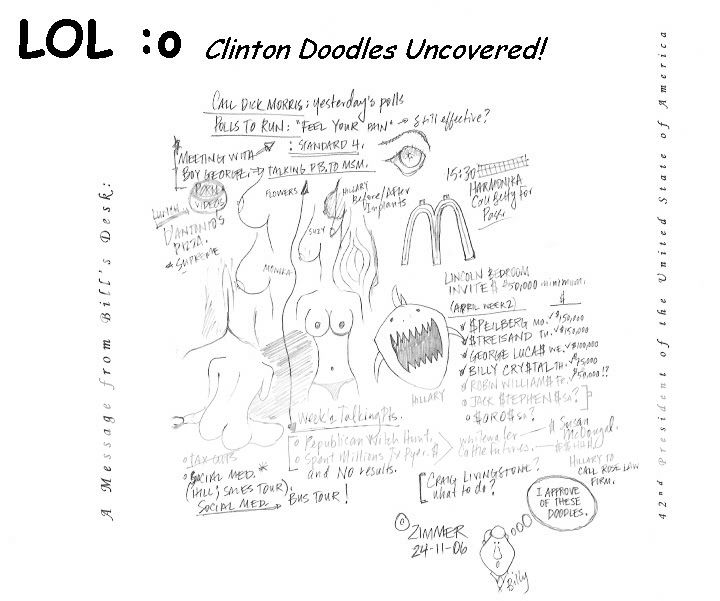 LOL :o Clinton Doodles Uncovered!
CALL DICK MORRIS: yesterday's polls
POLLS TO RUN: "FEEL YOUR PAIN" → still effective?
: STANDARD 4.
MEETING WITH
BOY GEORGE. → TALKING PTS. TO MSM.
PORN
VIDEOS
FLOWERS
HILLARY
Before/After
Implants
15:30
HARMONIKA
Call Betty for
Pass.
D'ANTONIO'S
PIZZA.
SUPREME
SUZY
MONIKA
LINCOLN BEDROOM
INVITE $ $50,000 minimum.
(APRIL WEEK 2) $
$PEILBERG MO. ✓$150,000
$TREISAND TU. ✓$150,000
GEORGE LUCA$ WE. ✓$100,000
BILLY CRY$TAL TH.
ROBIN WILLIAM$ FR. $50,000!?
JACK $TEPHEN$ SA?
$ORO$ SU?
HILLARY
Week's Talking Pts.
Republican Witch Hunt.
Spent Millions Tx Pyer. $
and NO results.
whitewater
Cattle Futures.
Susan
McDougal.
TAX CUTS
SOCIAL MED.*
(HILL; SALES TOUR).
SOCIAL MED. → BUS TOUR!
CRAIG LIVINGSTONE?
what to do?
HILLARY TO
CALL ROSE LAW
FIRM.
I APPROVE
OF THESE
DOODLES.
© ZIMMER
24-11-06
Billy
A Message from Bill's Desk:
42nd President of the United State of America